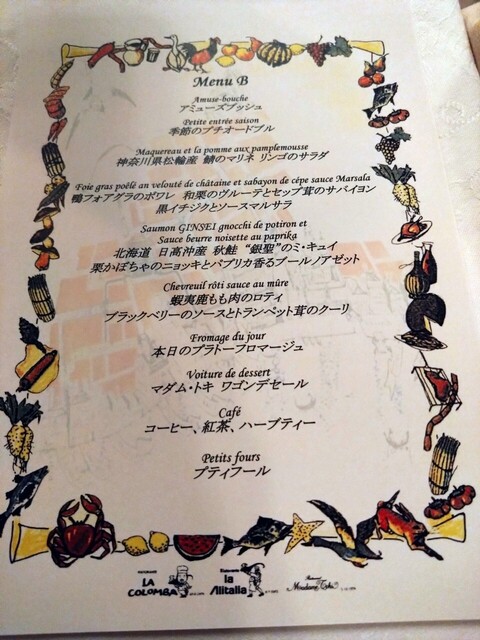 Menu B
Amuse-bouche
アミューズブッシュ
Petite entrée saison
季節のプチオードブル
Maquereau et la pomme aux pamplemousse
神奈川県松輪産 鯖のマリネ リンゴのサラダ
Foie gras poêlé an velouté de châtaine et sabayon de cépe sauce Marsala
鴨フォアグラのポワレ 和栗のヴルーテとセップ茸のサバイヨン
黒イチジクとソースマルサラ
Saumon GINSEI gnocchi de potiron et
Sauce beurre noisette au paprika
北海道 日高沖産 秋鮭 “銀聖”のミ・キュイ
栗かぼちゃのニョッキとパプリカ香るブールノアゼット
Chevreuil rôti sauce au mûre
蝦夷鹿もも肉のロティ
ブラックベリーのソースとトランペット茸のクーリ
Fromage du jour
本日のプラトーフロマージュ
Voiture de dessert
マダム・トキ ワゴンデセール
Café
コーヒー、紅茶、ハーブティー
Petits fours
プティフール
LA COLOMBA
la Alitalia
Madame Toki